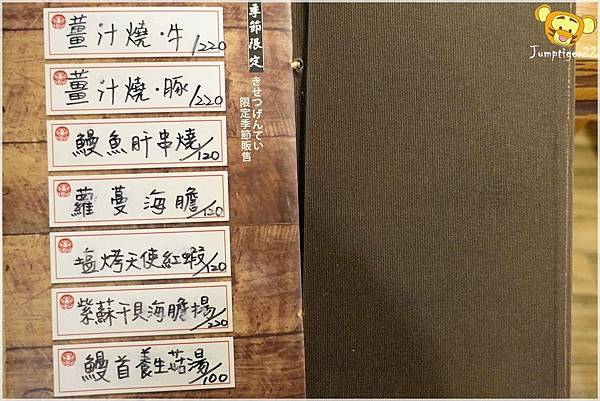 薑汁燒·牛/220
薑汁燒·豚/220
鰻魚肝串燒/120
蘿蔓海膽/120
塩烤天使紅蝦/120
紫蘇干貝海膽揚/220
鰻首養生菇湯/100
季節限定
きせつげんてい
限定季節販售
Jumptiger22